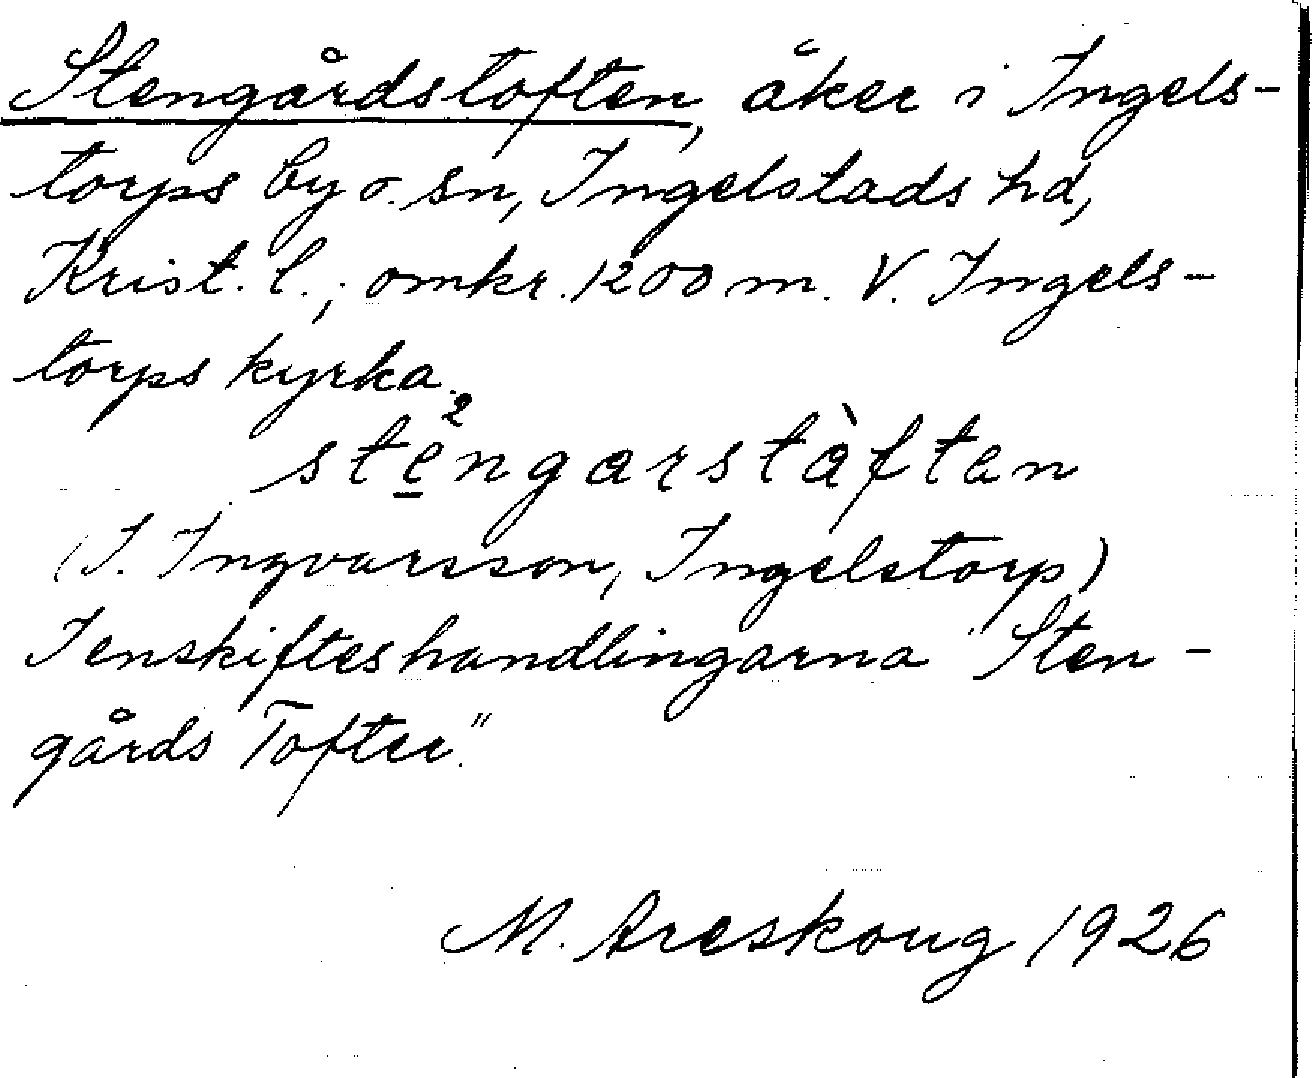 Stengårdstoften, åker i Ingels-
torps by o. sn, Ingelstads hd,
Krist. l.; omkr. 1200 m. V. Ingels-
torps kyrka.
ste̠²ngarstàftan
(I. Ingvarsson, Ingelstorp)
I enskifteshandlingarna "Sten-
gårds Tofter".
M. Areskoug 1926